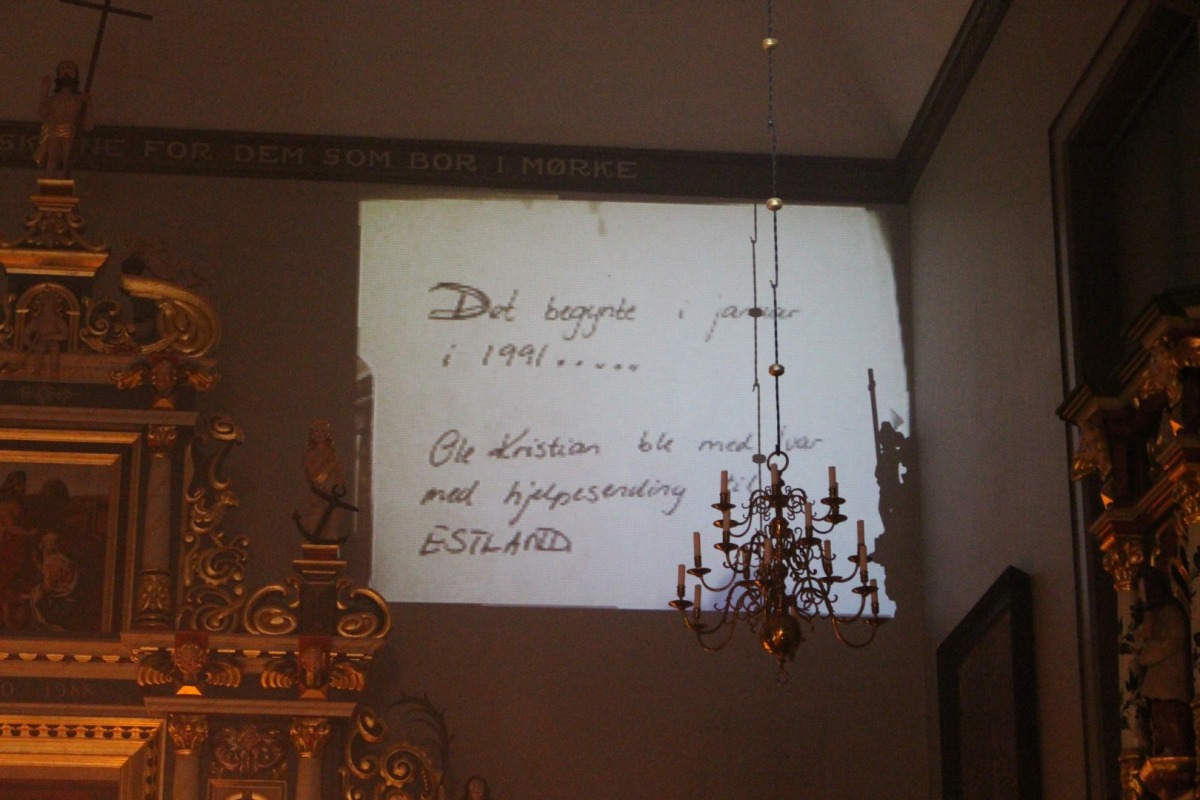 SKINNE FOR DEM SOM BOR I MØRKE
Det begynte i januar
i 1991.....
Ole Kristian ble med Ivar
med hjelpesending til
ESTLAND